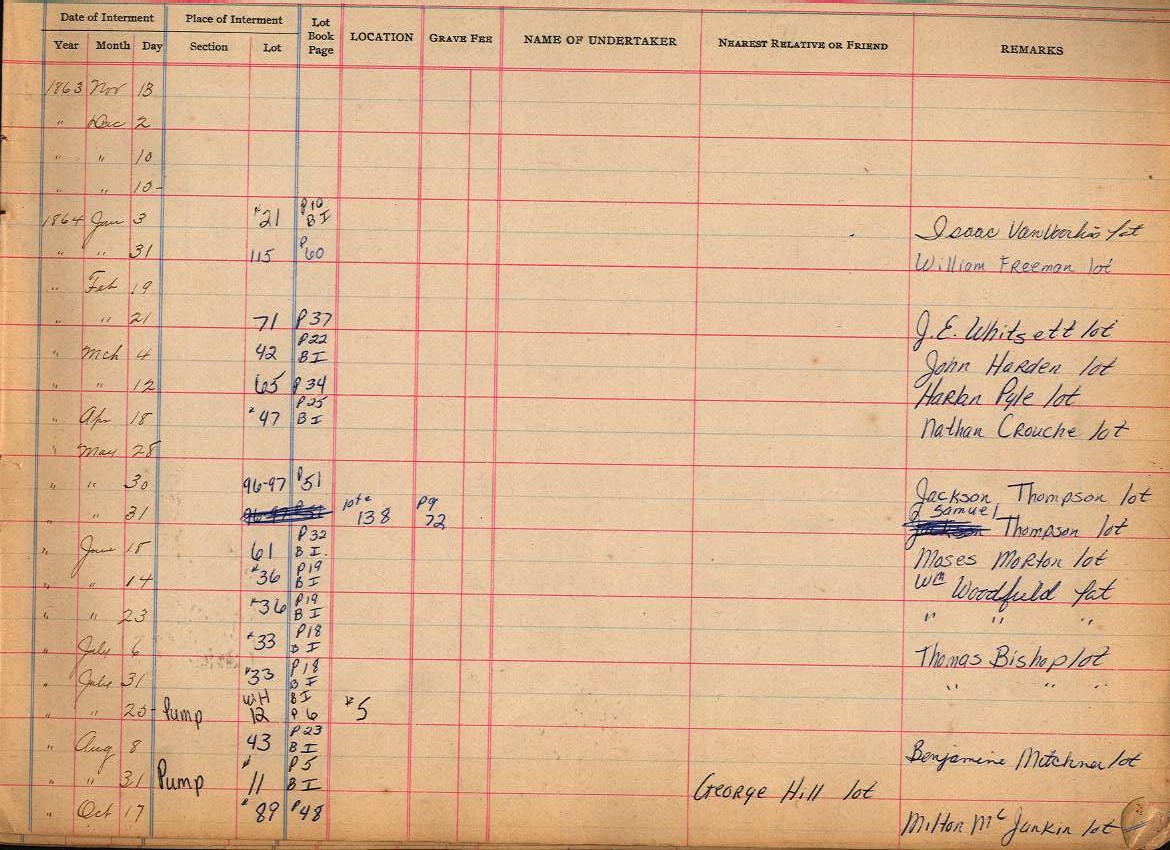 Date of Interment Place of Interment Lot Book Page LOCATION GRAVE FEE NAME OF UNDERTAKER NEAREST RELATIVE OR FRIEND REMARKS
Year Month Day Section Lot
1863 Nov 13
" Dec 2
" " 10
" " 10-
1864 Jan 3 #21 P10 B I Isaac VanVoorhis lot
" " 31 115 P60 William Freeman lot
" Feb 19
" " 21 71 P37 J.E. Whitsett lot
" Mch 4 42 P22 B I John Harden lot
" " 12 65 P34 Harlan Pyle lot
" Apr 18 #47 P25 B I Nathan Crouche lot
" May 28
" " 30 96-97 P51 Jackson Thompson lot
" " 31 96-97 P51 lot# 138 pg 72 J Samuel Jackson Thompson lot
" June 15 61 P32 B I. Moses Morton lot
" " 14 #36 P19 B I Wm Woodfield lot
" " 23 #36 P19 B I " " "
" July 6 #33 P18 B I Thomas Bishop lot
" July 31 #33 P18 B I " " "
" " 25 Pump WH 12 B I P6 #5
" Aug 8 43 P23 B I Benjamine Mitchner lot
" " 31 Pump # 11 P5 B I George Hill lot
" Oct 17 #89 P48 Milton Mc Junkin lot